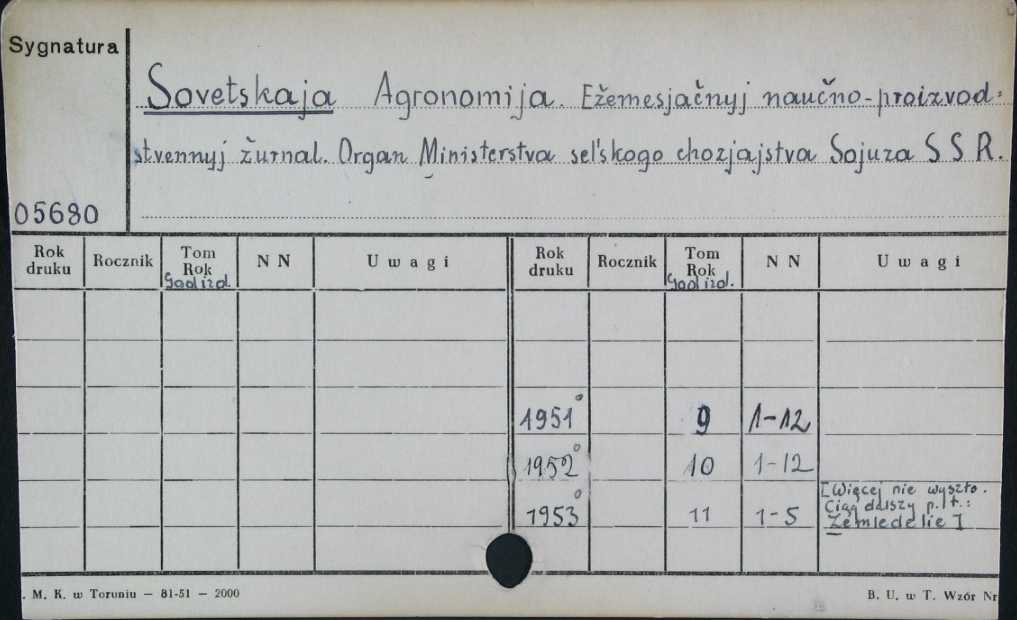 Sygnatura
Sovetskaja Agronomija. Ežemesjačnyj naučno-proizvod-
stvennyj žurnal. Organ Ministerstva sel'skogo chozjajstva Sojuza S S R.
05680
Rok druku Rocznik Tom Rok God izd. N N Uwagi Rok druku Rocznik Tom Rok God izd. N N Uwagi
1951° 9 1-12
1952° 10 1-12
1953° 11 1-5 [Więcej nie wyszło.
Ciąg dalszy p.t.:
Zemledelie]
. M. K. w Toruniu — 81-51 — 2000
B. U. w T. Wzór Nr